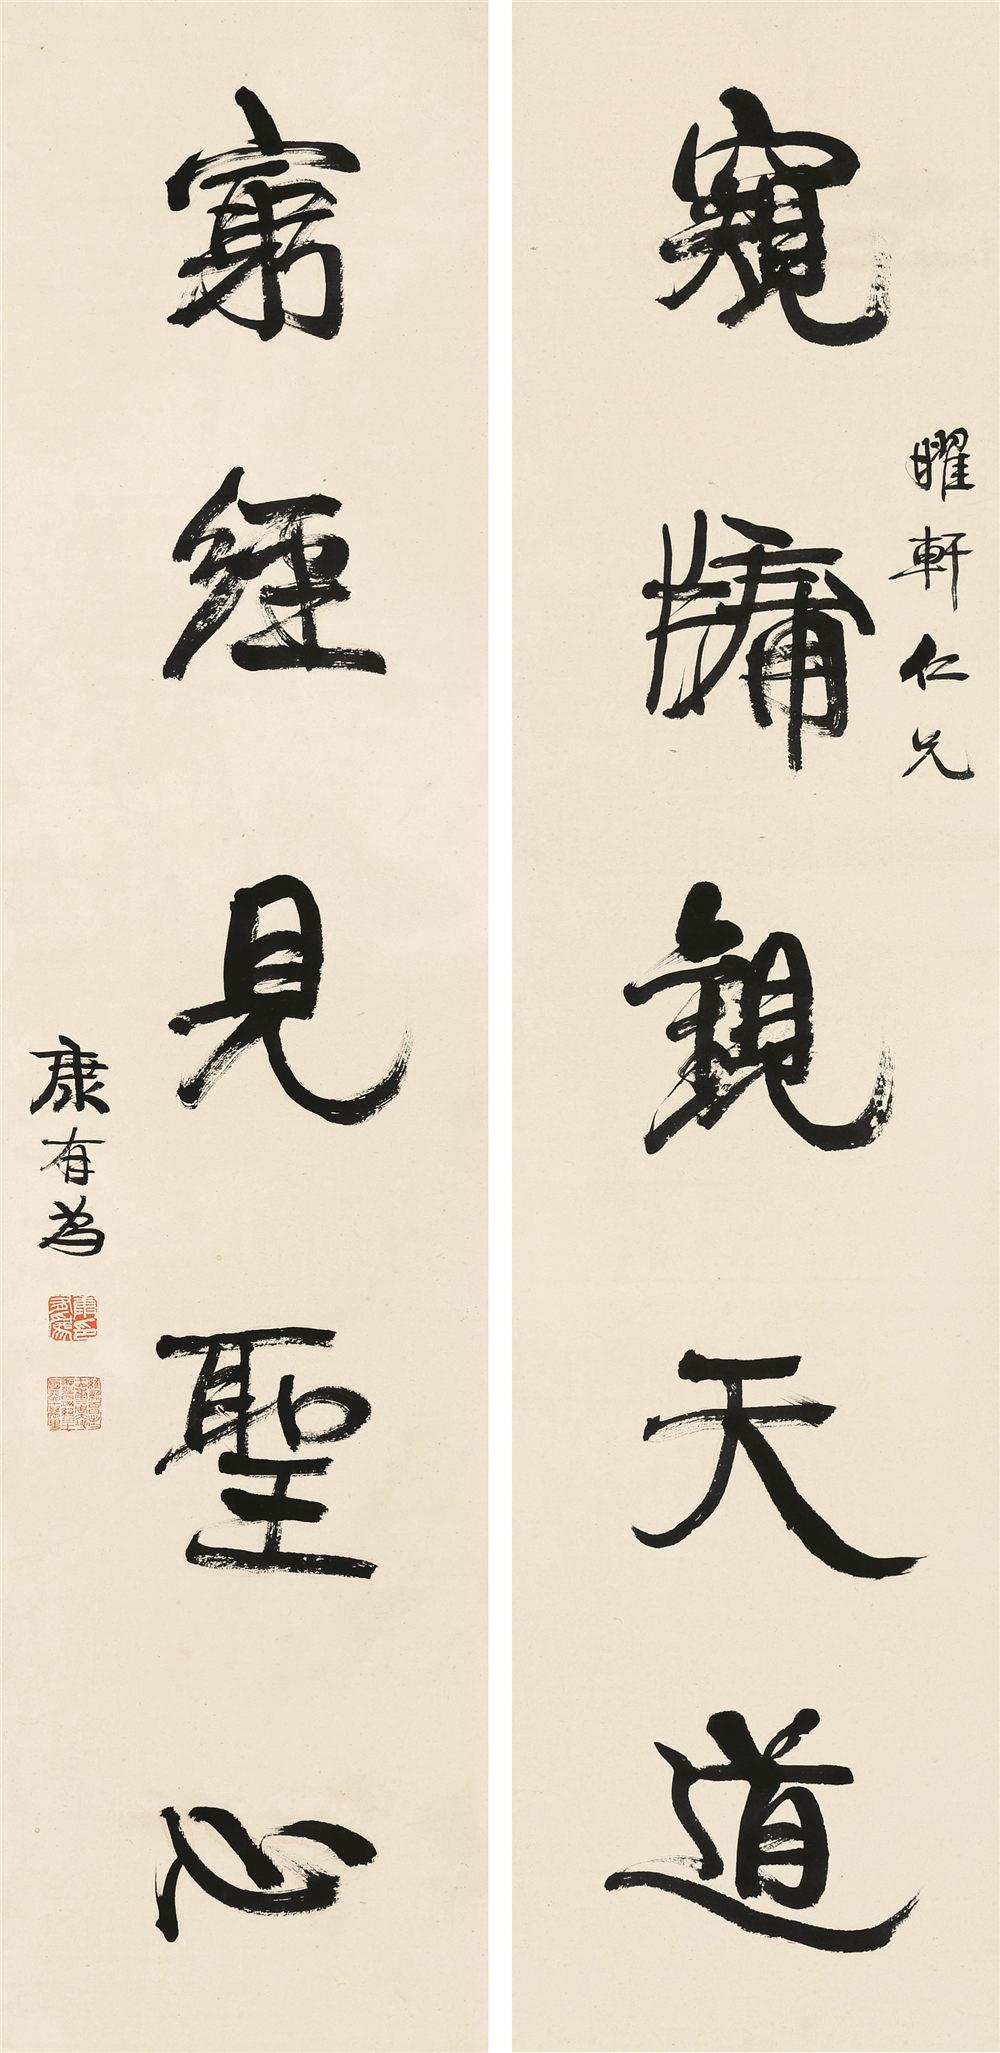 窺牖觀天道
曜軒仁兄
窮經見聖心
康有為